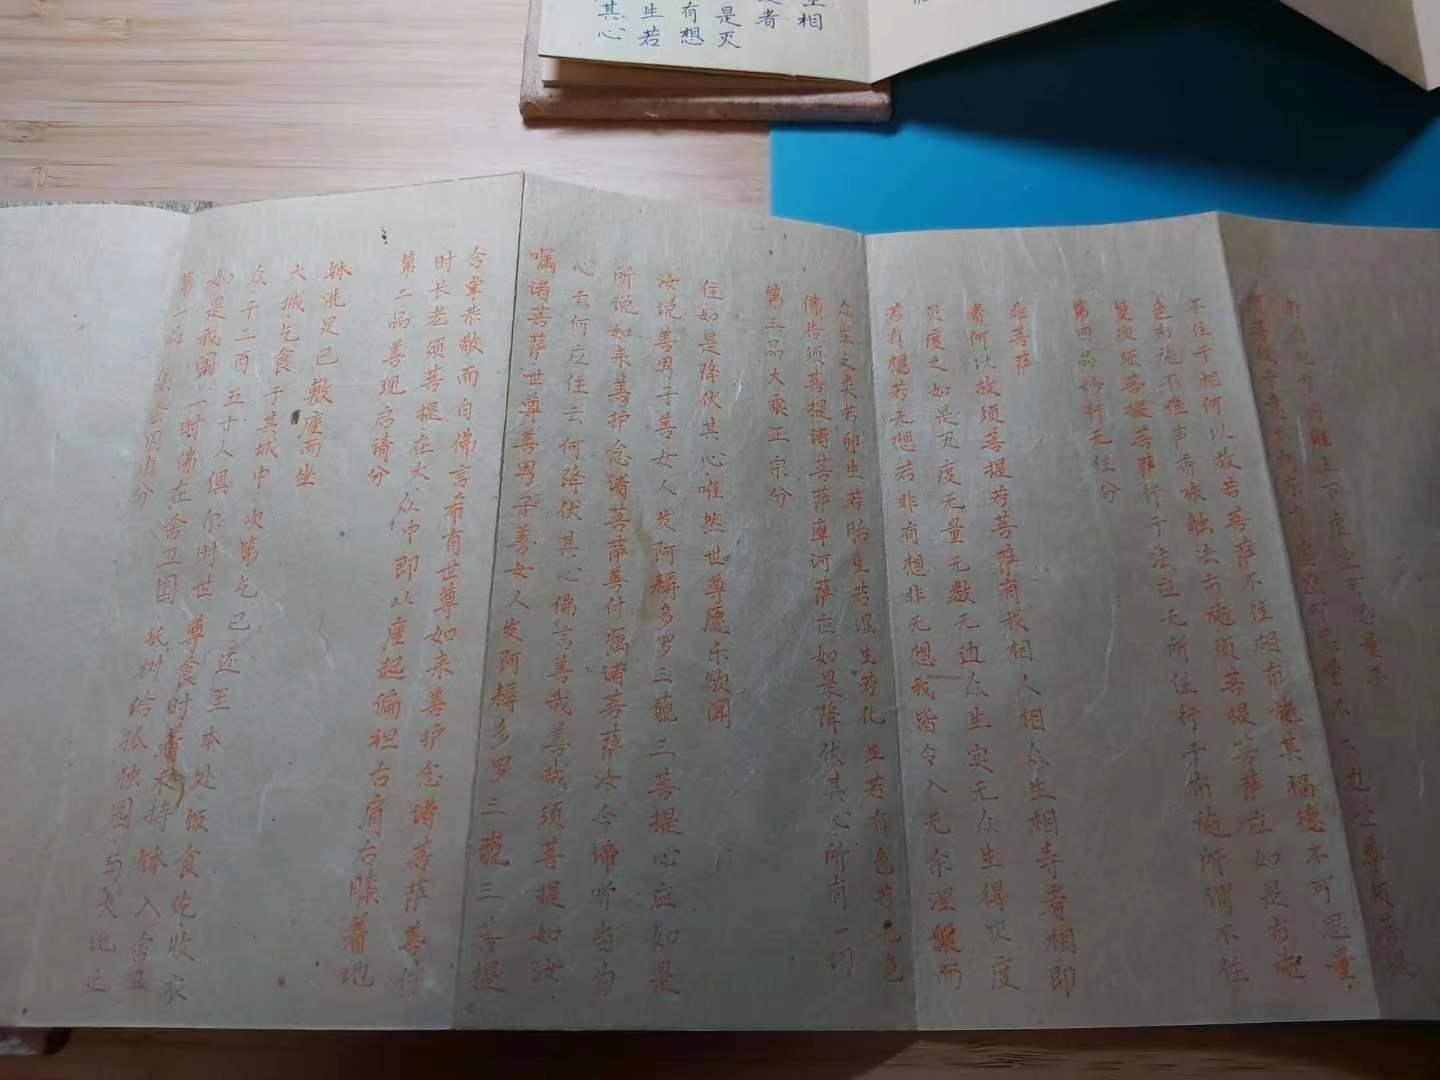 其心
生若
有想
是灭
者
相
第一品 法会因由分
如是我闻一时佛在舍卫国祇树给孤独园与大比丘
众千二百五十人俱尔时世尊食时着衣持钵入舍卫
大城乞食于其城中次第乞已还至本处饭食讫收衣
钵洗足已敷座而坐
第二品善现启请分
时长老须菩提在大众中即从座起偏袒右肩右膝着地
合掌恭敬而白佛言希有世尊如来善护念诸菩萨善付
嘱诸菩萨世尊善男子善女人发阿耨多罗三藐三菩提
心云何应住云何降伏其心佛言善哉善哉须菩提如汝
所说如来善护念诸菩萨善付嘱诸菩萨汝今谛听当为
汝说善男子善女人发阿耨多罗三藐三菩提心应如是
住如是降伏其心唯然世尊愿乐欲闻
第三品大乘正宗分
佛告须菩提诸菩萨摩诃萨应如是降伏其心所有一切
众生之类若卵生若胎生若湿生若化生若有色若无色
若有想若无想若非有想非无想我皆令入无余涅槃而
灭度之如是灭度无量无数无边众生实无众生得灭度
者何以故须菩提若菩萨有我相人相众生相寿者相即
非菩萨
第四品妙行无住分
复次须菩提菩萨行于法应无所住行于布施所谓不住
色布施不住声香味触法布施须菩提菩萨应如是布施
不住于相何以故若菩萨不住相布施其福德不可思量
须菩提于意云何东方虚空可思量不不也世尊须菩提
南西北方四维上下虚空可思量不